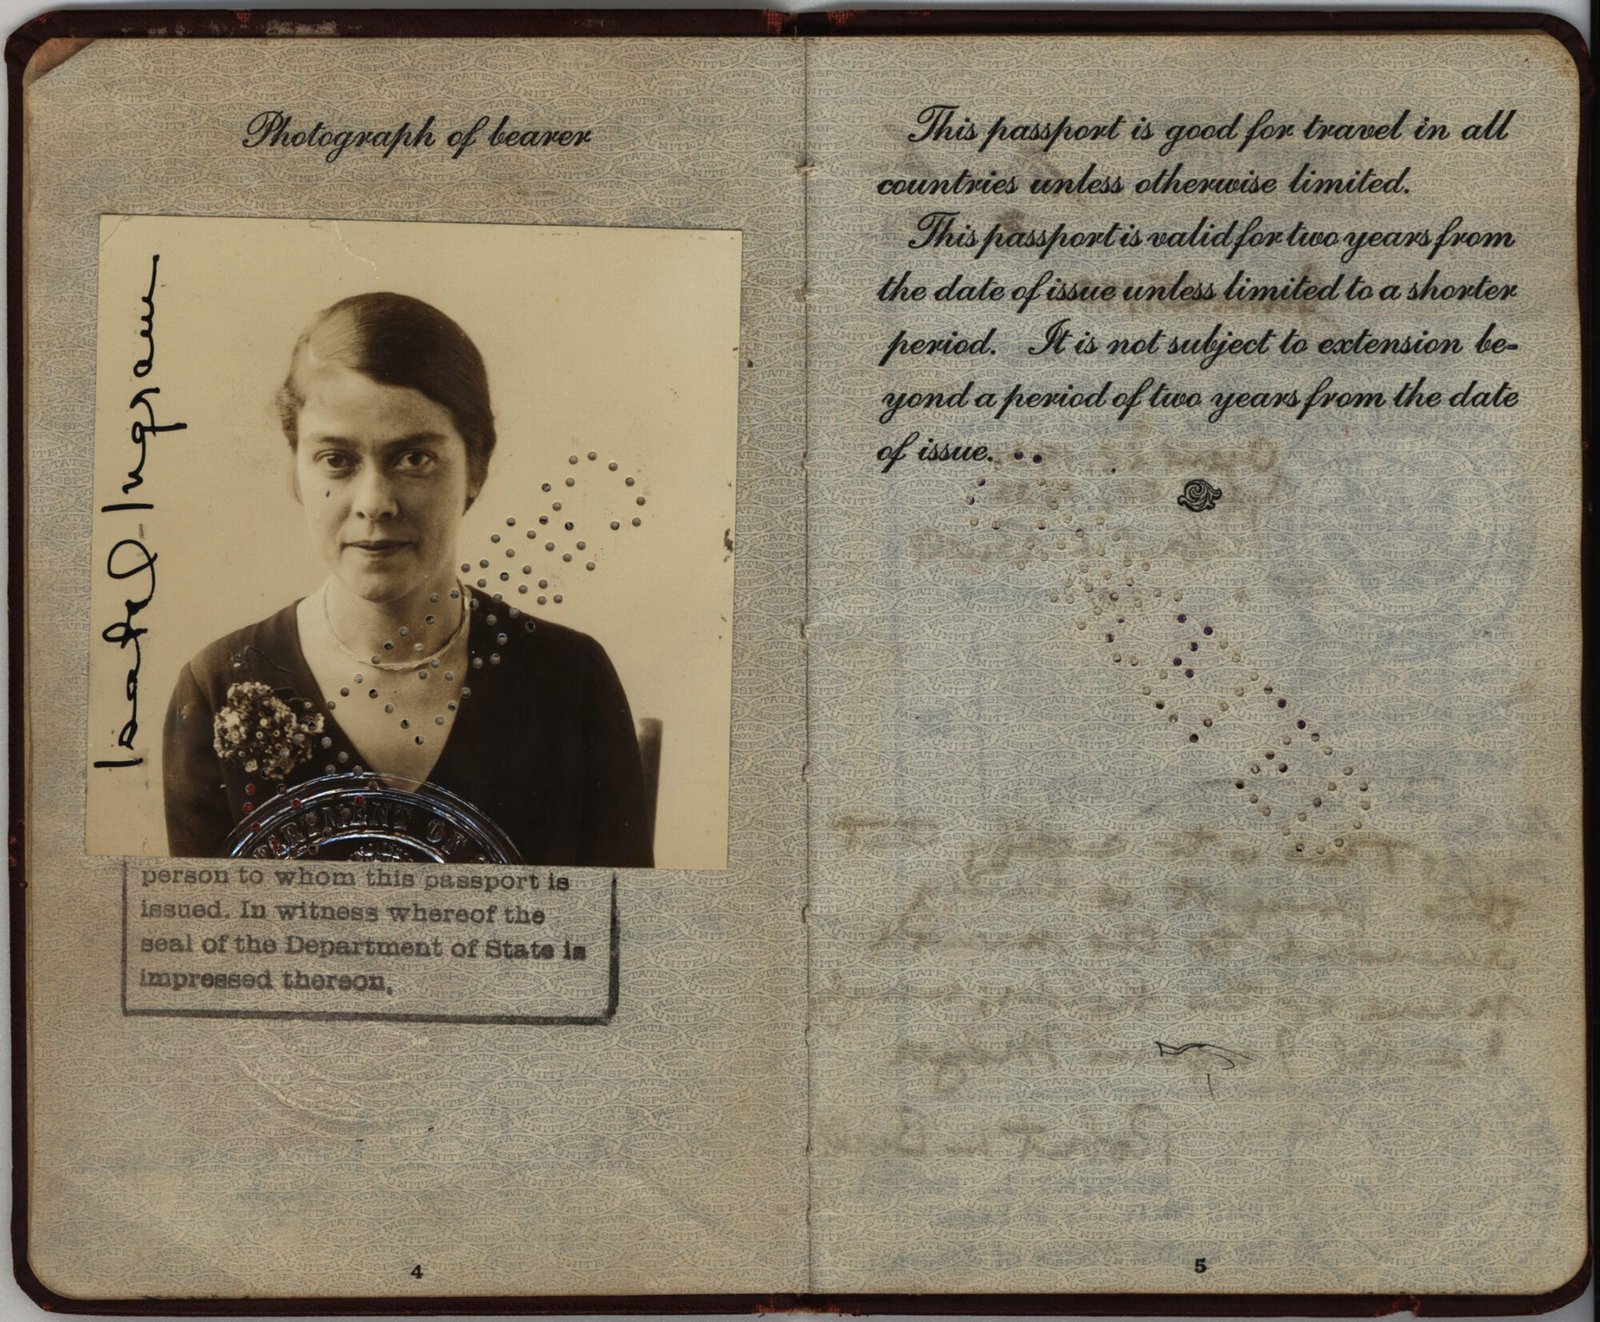 Photograph of bearer
Isabel Ingram
DEPARTMENT OF
person to whom this passport is
issued. In witness whereof the
seal of the Department of State is
impressed thereon.
4
This passport is good for travel in all
countries unless otherwise limited.
This passport is valid for two years from
the date of issue unless limited to a shorter
period. It is not subject to extension be-
yond a period of two years from the date
of issue.
5